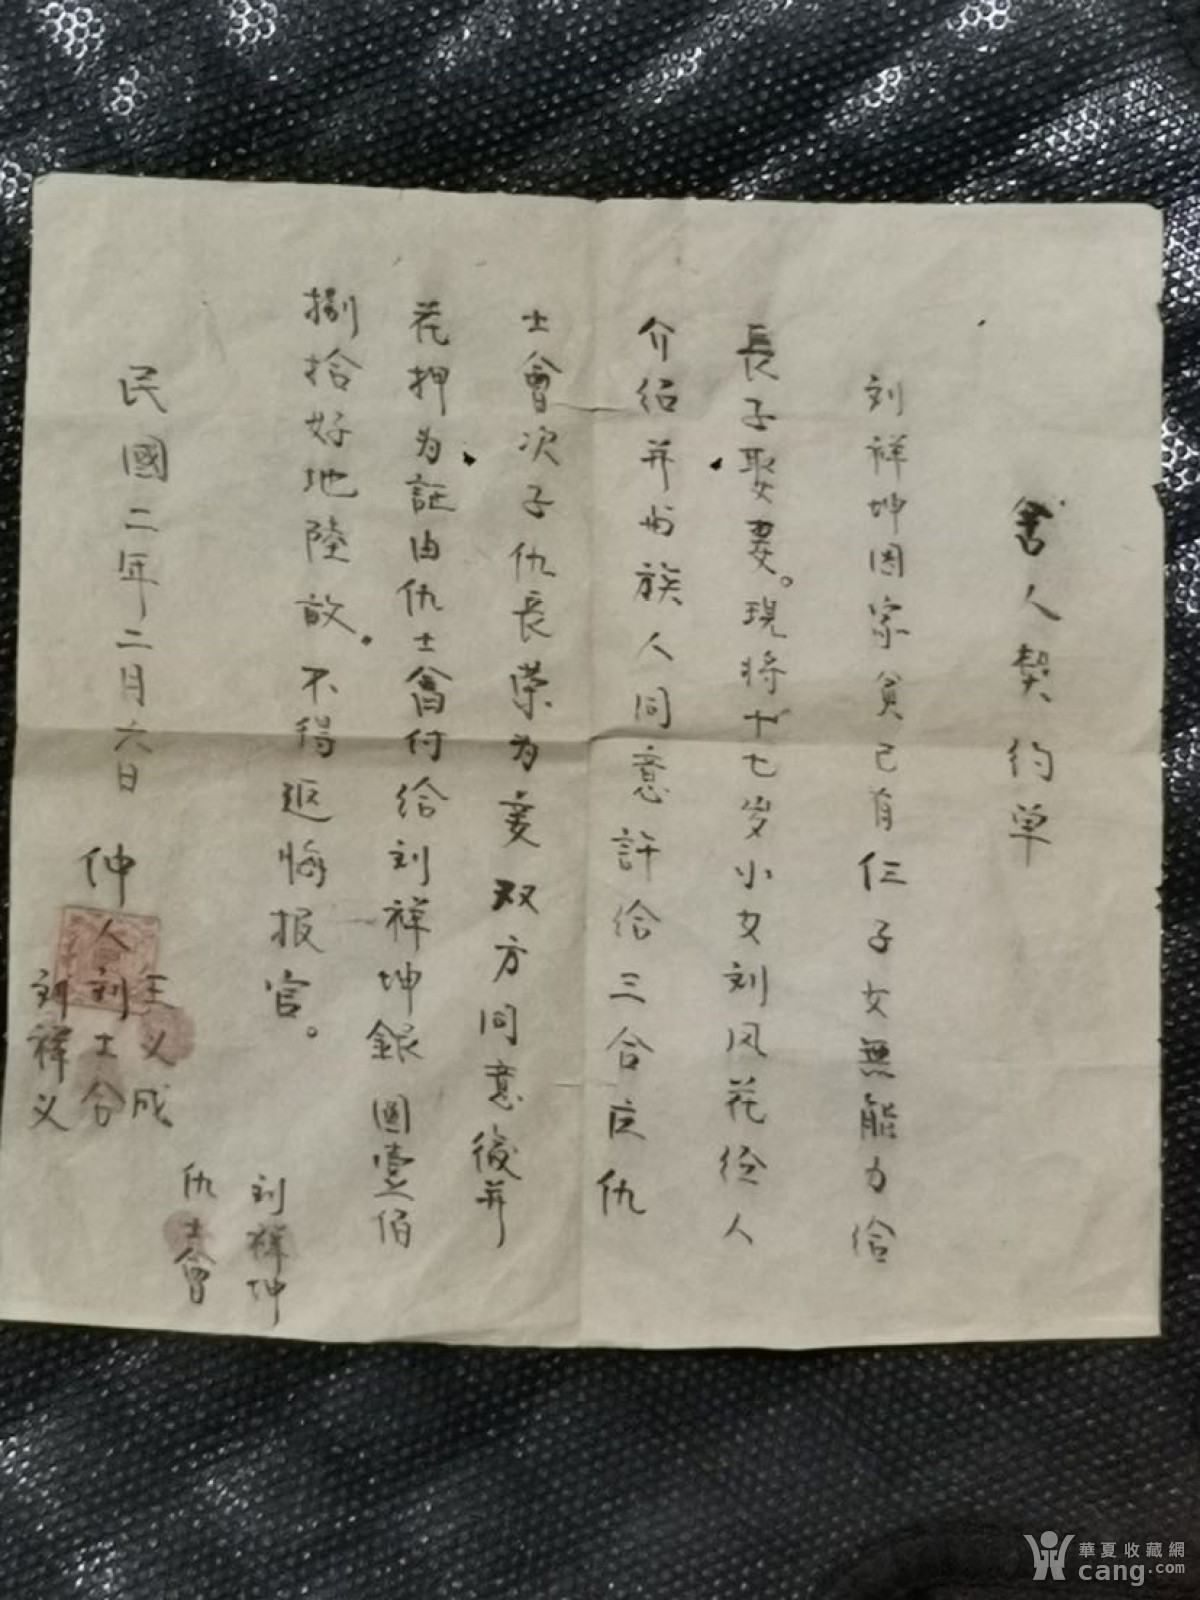 人契约单
刘祥坤因家贫已有仨子女無能力给
長子娶妻。現将十七岁小女刘风花经人
介绍并与族人同意許给三合庄仇
士會次子仇長荣为妾双方同意後并
花押为証由仇士會付给刘祥坤銀圆壹佰
捌拾好地陸畝。不得返悔报官。
刘祥坤
仇士會
民國二年二月六日
仲人
王义成
刘士合
刘祥义
華夏收藏網
cang.com